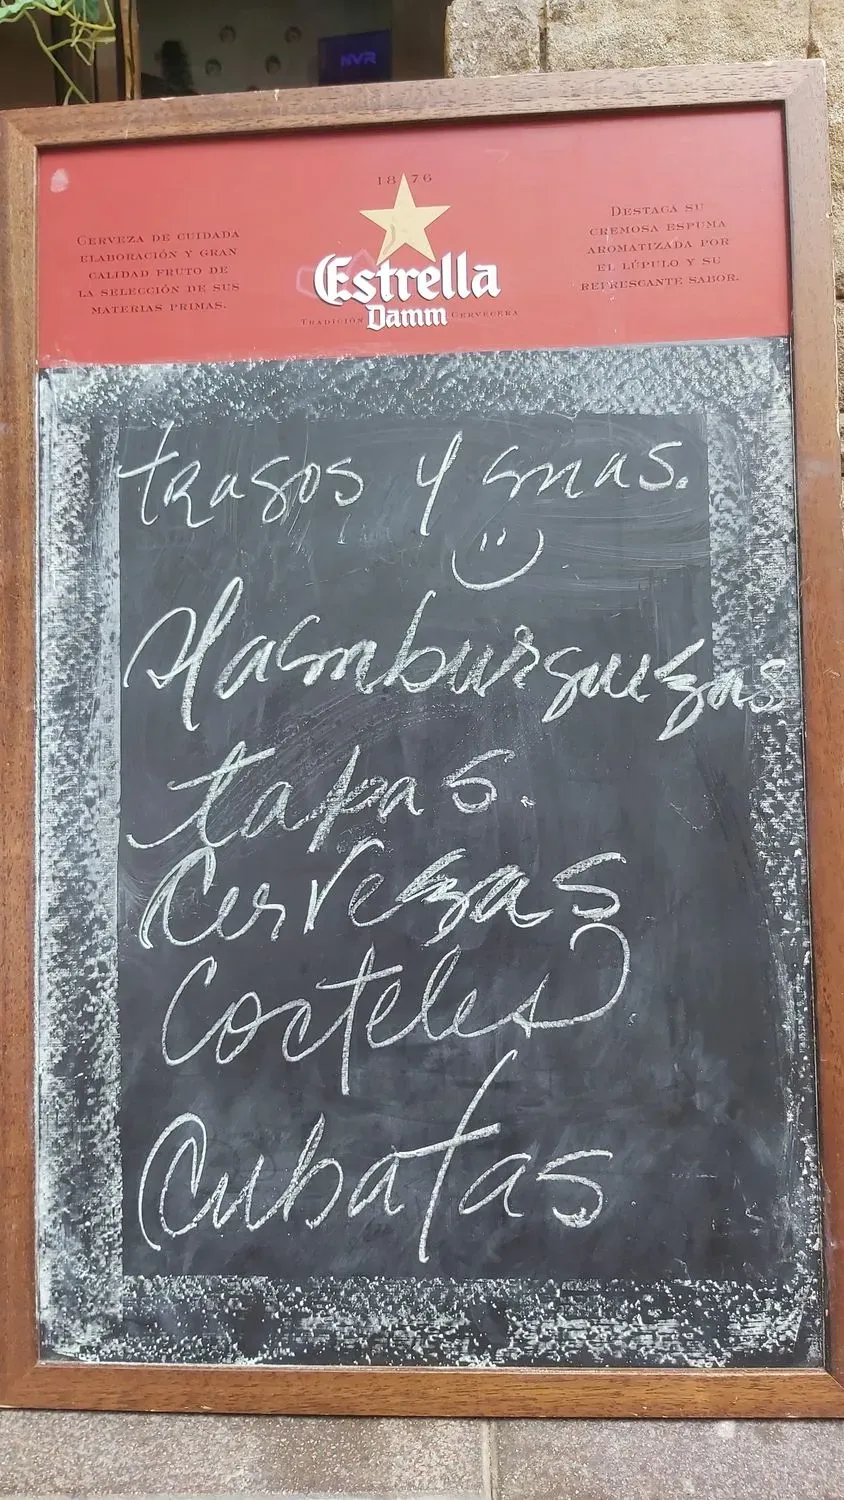 NVR
1876
CERVEZA DE CUIDADA
ELABORACIÓN Y GRAN
CALIDAD FRUTO DE
LA SELECCIÓN DE SUS
MATERIAS PRIMAS.
Estrella
Damm
TRADICIÓN CERVECERA
DESTACA SU
CREMOSA ESPUMA
AROMATIZADA POR
EL LÚPULO Y SU
REFRESCANTE SABOR.
tragos y mas.
Hamburguezas
tapas.
Cervezas
Cocteles
Cubatas